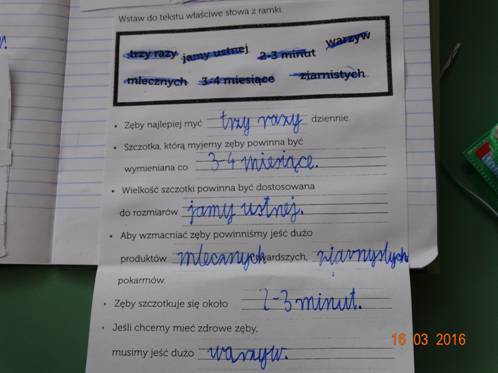 Wstaw do tekstu właściwe słowa z ramki.
trzy razy jamy ustnej 2-3 minut warzyw
mlecznych 3-4 miesiące ziarnistych
• Zęby najlepiej myć trzy razy dziennie.
• Szczotka, którą myjemy zęby powinna być
wymieniana co 3-4 miesiące.
• Wielkość szczotki powinna być dostosowana
do rozmiarów jamy ustnej.
• Aby wzmacniać zęby powinniśmy jeść dużo
produktów mlecznych wardszych, ziarnystych
pokarmów.
• Zęby szczotkuje się około 2-3 minut.
• Jeśli chcemy mieć zdrowe zęby,
musimy jeść dużo warzyw.
16 03 2016